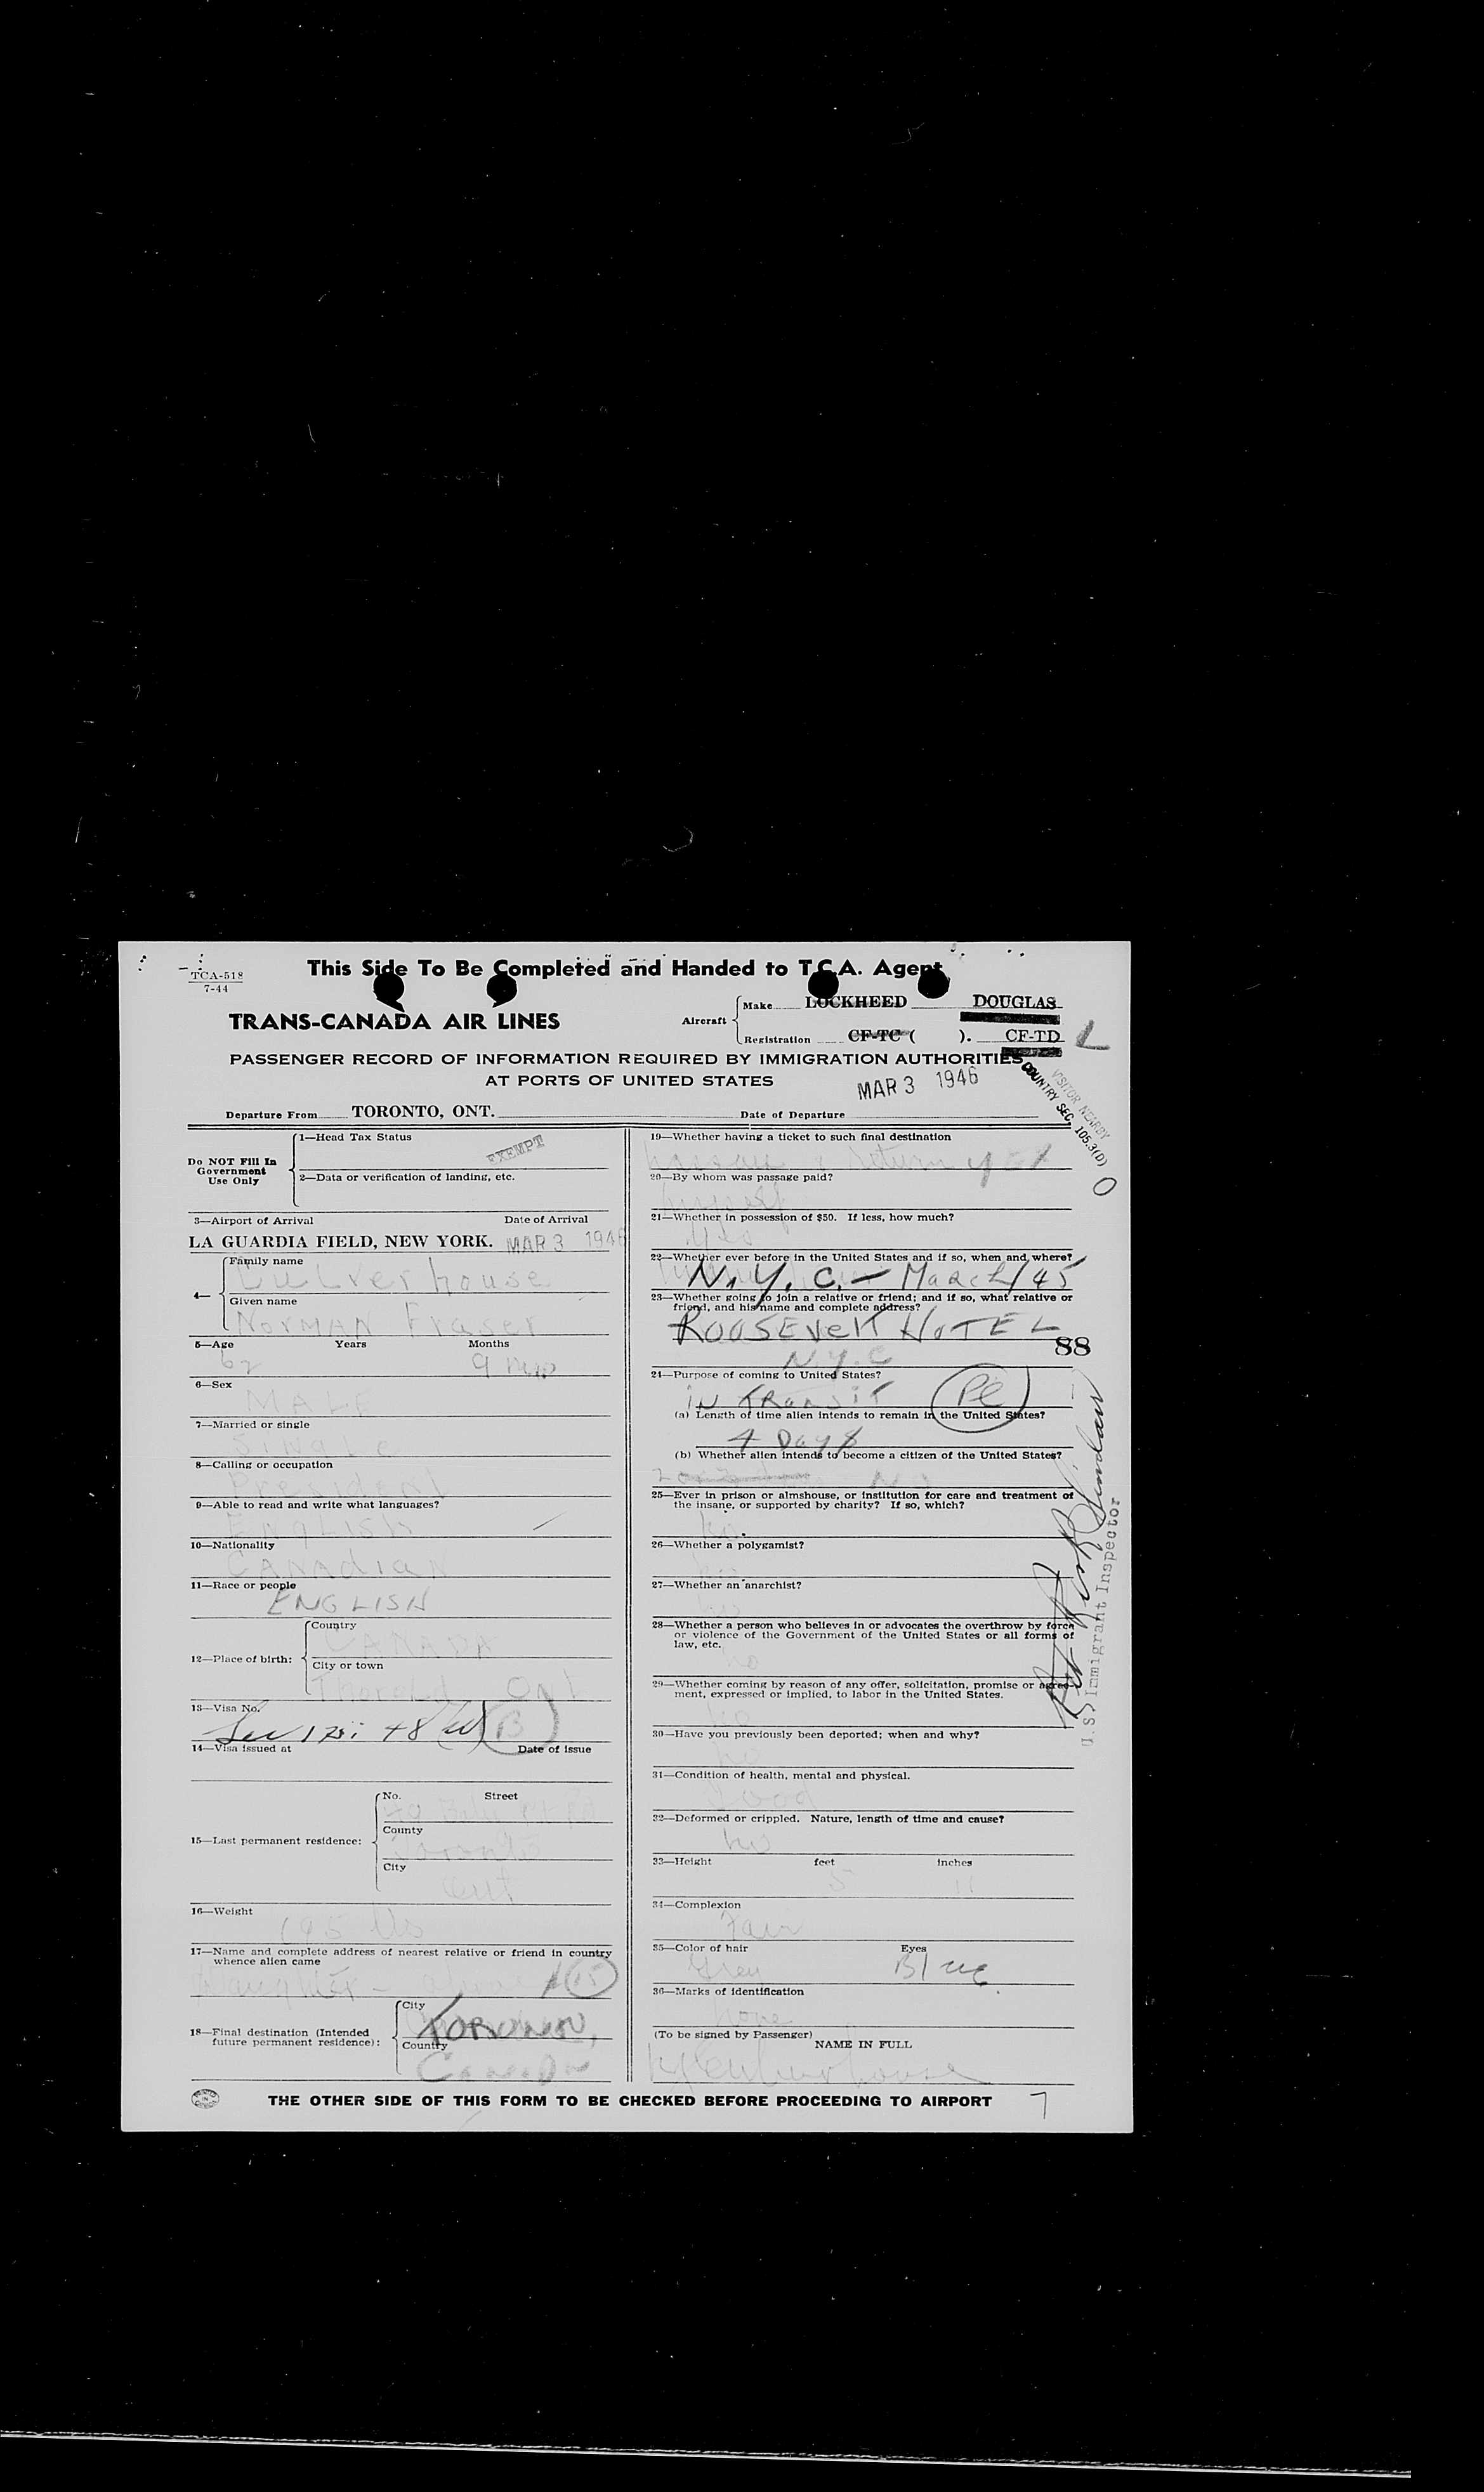 This Side To Be Completed and Handed to T.C.A. Agent
TCA-518
7-44
TRANS-CANADA AIR LINES
Aircraft
Make LOCKHEED DOUGLAS
Registration CF-TC ( ). CF-TD
L
PASSENGER RECORD OF INFORMATION REQUIRED BY IMMIGRATION AUTHORITIES
AT PORTS OF UNITED STATES
MAR 3 1946
VISITOR NEARBY
COUNTRY SEC. 105.3(D)
Departure From TORONTO, ONT. Date of Departure
Do NOT Fill In
Government
Use Only
1—Head Tax Status
EXEMPT
2—Data or verification of landing, etc.
3—Airport of Arrival Date of Arrival
LA GUARDIA FIELD, NEW YORK. MAR 3 1946
4—
Family name
Culverhouse
Given name
NORMAN Fraser
5—Age Years Months
62 9 mo
6—Sex
MALE
7—Married or single
Single
8—Calling or occupation
President
9—Able to read and write what languages?
ENGLISH
10—Nationality
CANADIAN
11—Race or people
ENGLISH
12—Place of birth:
Country
CANADA
City or town
Ont
13—Visa No.
B
14—Visa issued at Date of issue
15—Last permanent residence:
No. Street
County
Toronto
City
Ont
16—Weight
195 lbs
17—Name and complete address of nearest relative or friend in country
whence alien came
Daughter - above 15
18—Final destination (Intended
future permanent residence):
City
TORONTO,
Country
Canada
19—Whether having a ticket to such final destination
Nassau & return yes
20—By whom was passage paid?
himself
21—Whether in possession of $50. If less, how much?
Yes
22—Whether ever before in the United States and if so, when and where?
N.Y.C. — March/45
23—Whether going to join a relative or friend; and if so, what relative or
friend, and his name and complete address?
ROOSEVELT HOTEL
88
N.Y.C
24—Purpose of coming to United States?
IN TRANSIT
(a) Length of time alien intends to remain in the United States?
4 Days
(b) Whether alien intends to become a citizen of the United States?
No
25—Ever in prison or almshouse, or institution for care and treatment of
the insane, or supported by charity? If so, which?
no.
26—Whether a polygamist?
no
27—Whether an anarchist?
no
28—Whether a person who believes in or advocates the overthrow by force
or violence of the Government of the United States or all forms of
law, etc.
no
29—Whether coming by reason of any offer, solicitation, promise or agree-
ment, expressed or implied, to labor in the United States.
no
30—Have you previously been deported; when and why?
no
31—Condition of health, mental and physical.
Good
32—Deformed or crippled. Nature, length of time and cause?
no
33—Height feet inches
5 11
34—Complexion
Fair
35—Color of hair Eyes
Grey Blue
36—Marks of identification
none
(To be signed by Passenger)
NAME IN FULL
U.S. Immigrant Inspector
THE OTHER SIDE OF THIS FORM TO BE CHECKED BEFORE PROCEEDING TO AIRPORT
7